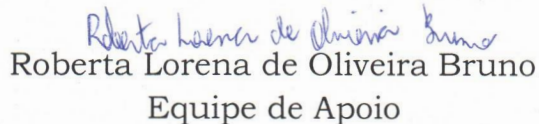 Roberta Lorena de Oliveira Bruno
Roberta Lorena de Oliveira Bruno
Equipe de Apoio